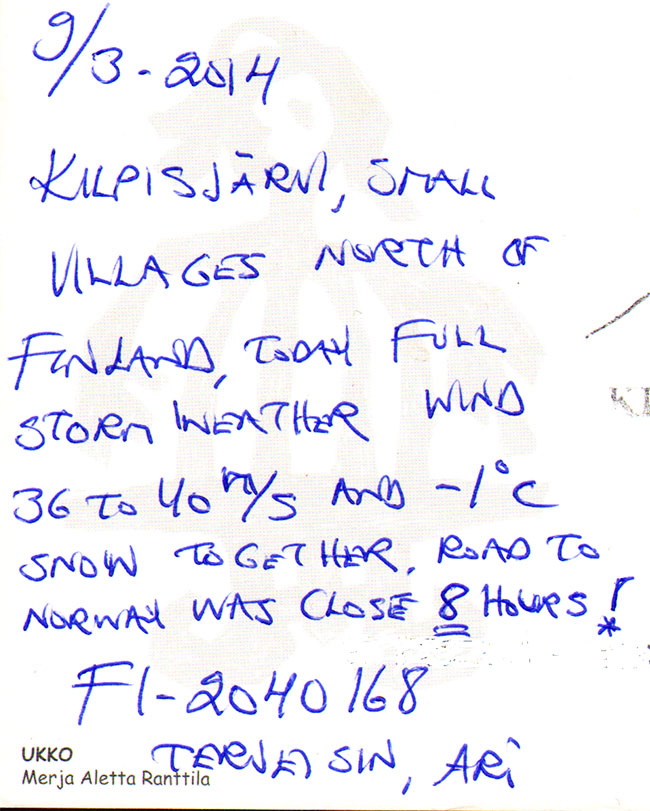 9/3-2014
KILPISJÄRVI, SMALL
VILLAGES NORTH OF
FINLAND, TODAY FULL
STORM WEATHER WIND
36 TO 40 m/s AND -1°C
SNOW TOGETHER, ROAD TO
NORWAY WAS CLOSE 8 HOURS!
FI-2040168
TERVEISIN, ARI
UKKO
Merja Aletta Ranttila